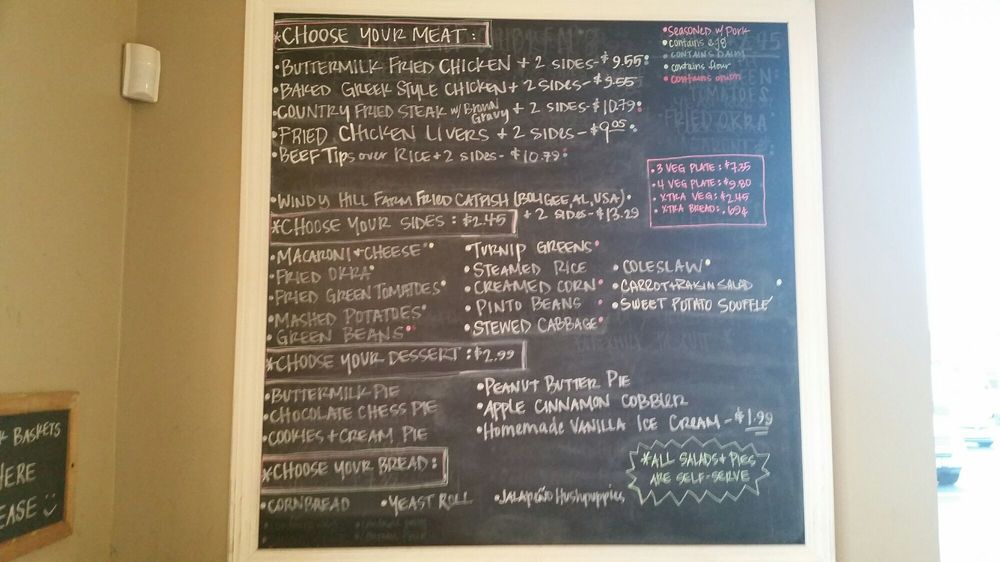 *CHOOSE YOUR MEAT:
•BUTTERMILK FRIED CHICKEN + 2 SIDES-$9.55
•BAKED GREEK STYLE CHICKEN + 2 SIDES-$9.55
•COUNTRY FRIED STEAK w/ Brown Gravy + 2 SIDES-$10.79
•FRIED CHICKEN LIVERS + 2 SIDES-$9.05
•BEEF TIPS OVER RICE + 2 SIDES-$10.79
•WINDY HILL FARM FRIED CATFISH (BOLIGEE, AL, USA)
+ 2 SIDES-$13.29
•SEASONED W/ PORK
•contains egg
•CONTAINS DAIRY
•contains flour
•contains onion
•3 VEG PLATE: $7.35
•4 VEG PLATE: $9.80
•XTRA VEG: $2.45
•XTRA BREAD: .69¢
*CHOOSE YOUR SIDES: $2.45
•MACARONI + CHEESE
•FRIED OKRA
•FRIED GREEN TOMATOES
•MASHED POTATOES
•GREEN BEANS
•TURNIP GREENS
•STEAMED RICE
•CREAMED CORN
•PINTO BEANS
•STEWED CABBAGE
•COLESLAW
•CARROT + RAISIN SALAD
•SWEET POTATO SOUFFLÉ
*CHOOSE YOUR DESSERT: $2.99
•BUTTERMILK PIE
•CHOCOLATE CHESS PIE
•COOKIES + CREAM PIE
•PEANUT BUTTER PIE
•APPLE CINNAMON COBBLER
•HOMEMADE VANILLA ICE CREAM-$1.99
*CHOOSE YOUR BREAD:
•CORNBREAD
•YEAST ROLL
•JALAPEÑO Hushpuppies
*ALL SALADS + PIES
ARE SELF-SERVE
BASKETS
HERE